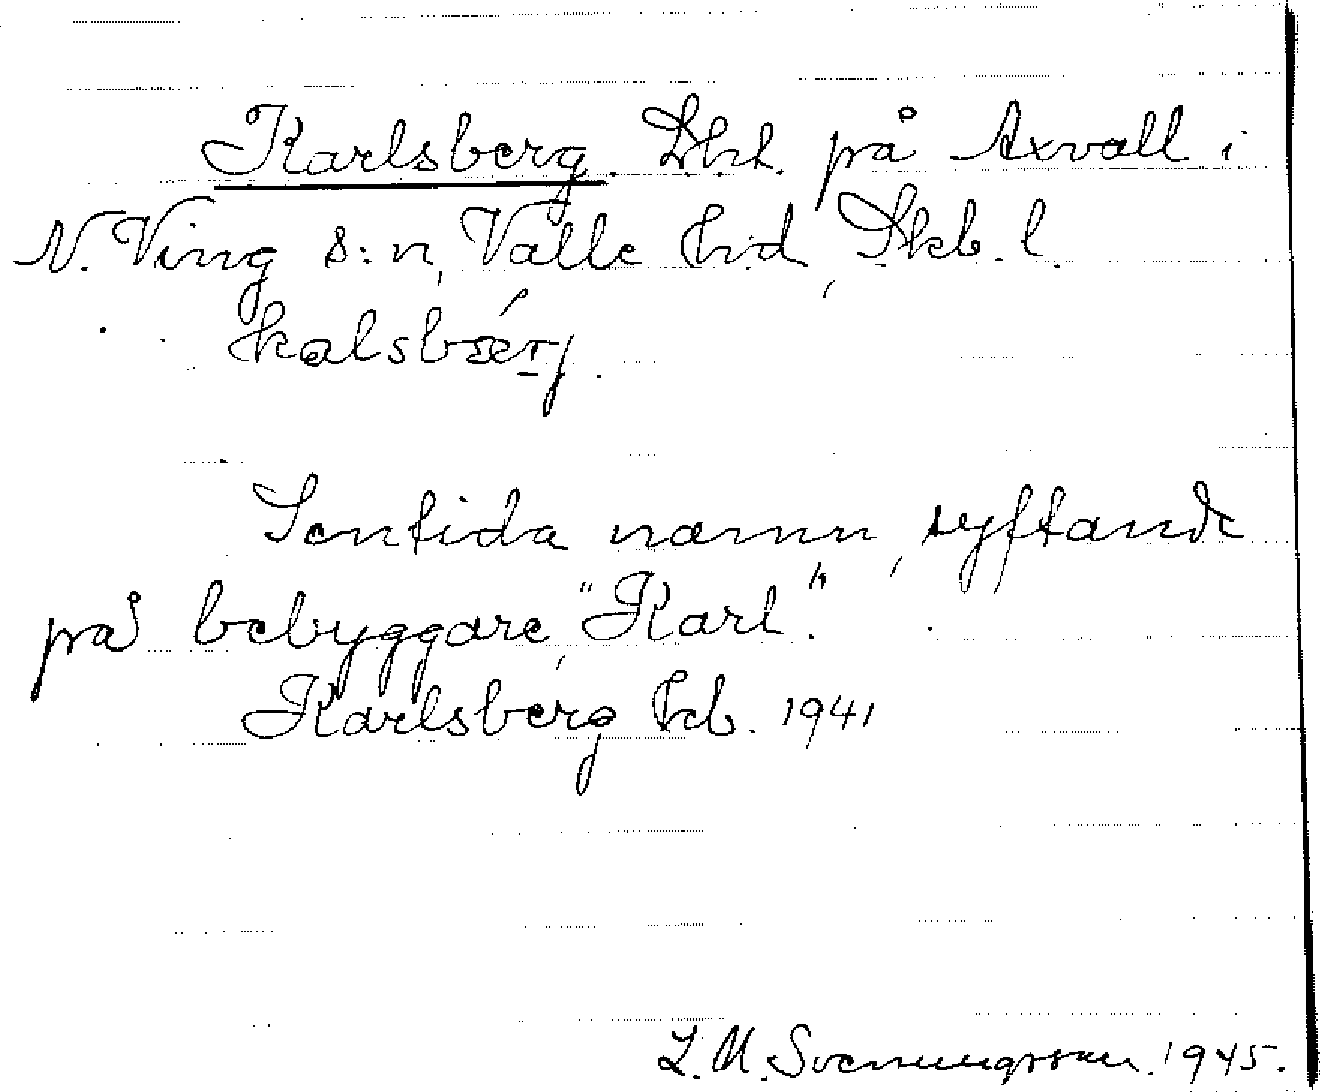 Karlsberg. Lht. på Axvall i
N. Ving s:n, Valle hd, Skb. l.
kalsbærj.
Sentida namn, syftande
på bebyggare, "Karl".
Karlsberg hb. 1941
L. M. Svenungsson. 1945.